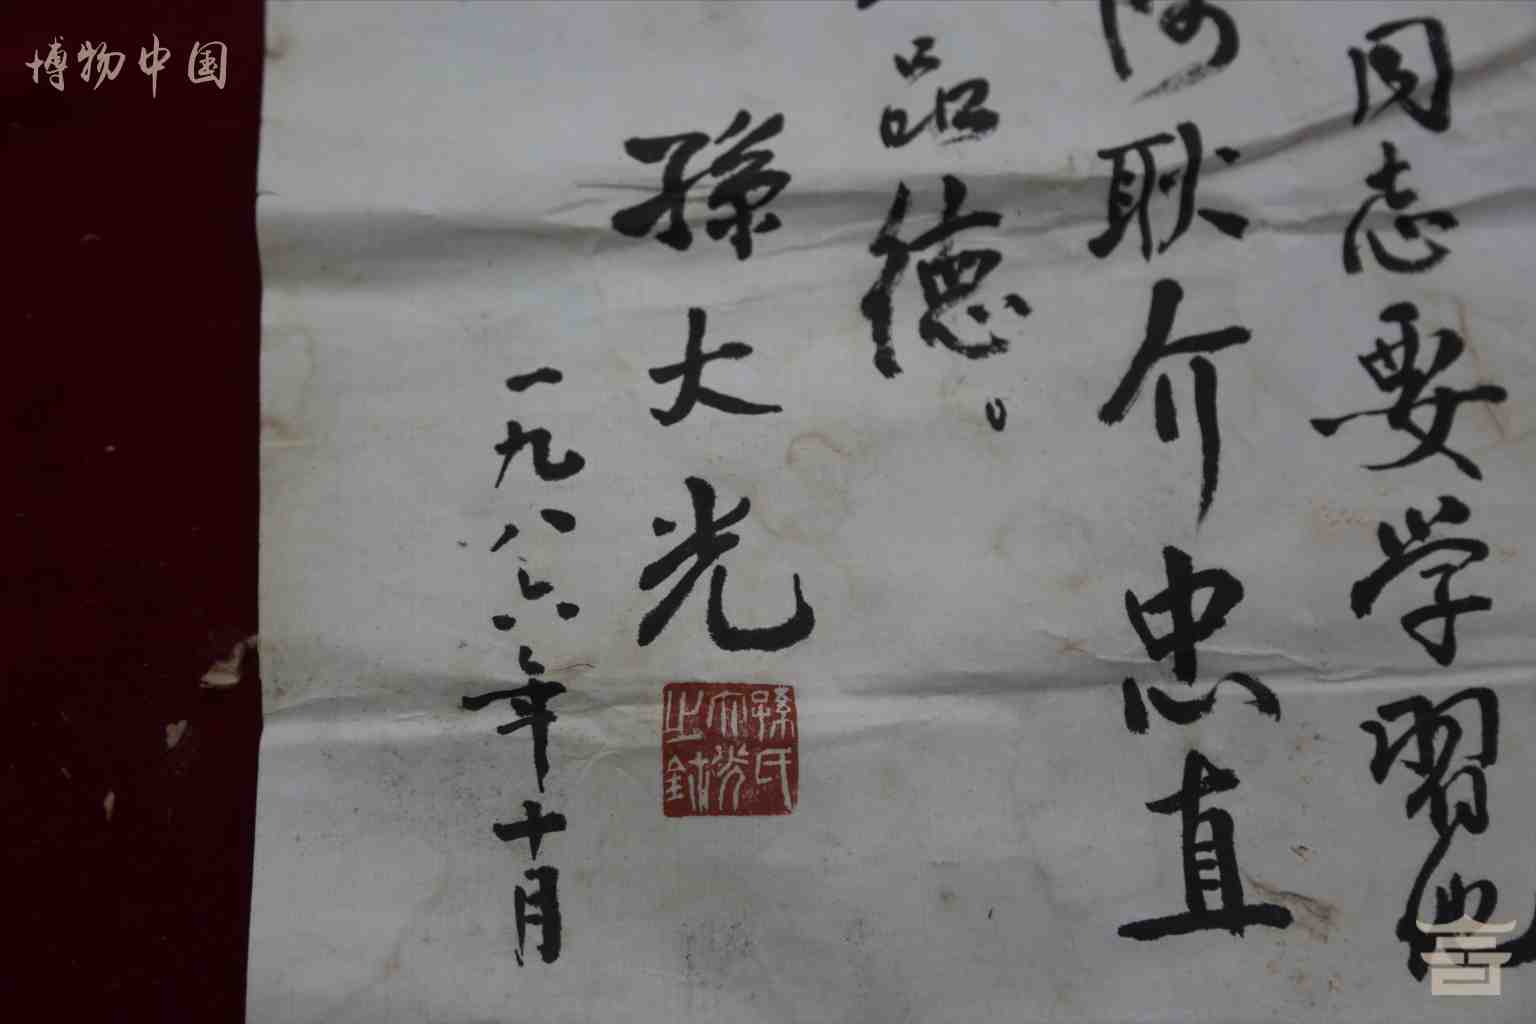 博物中国
同志要学习他
阿耿介忠直
品德。
孫大光
一九八六年十月
孫氏
大光
之鉨